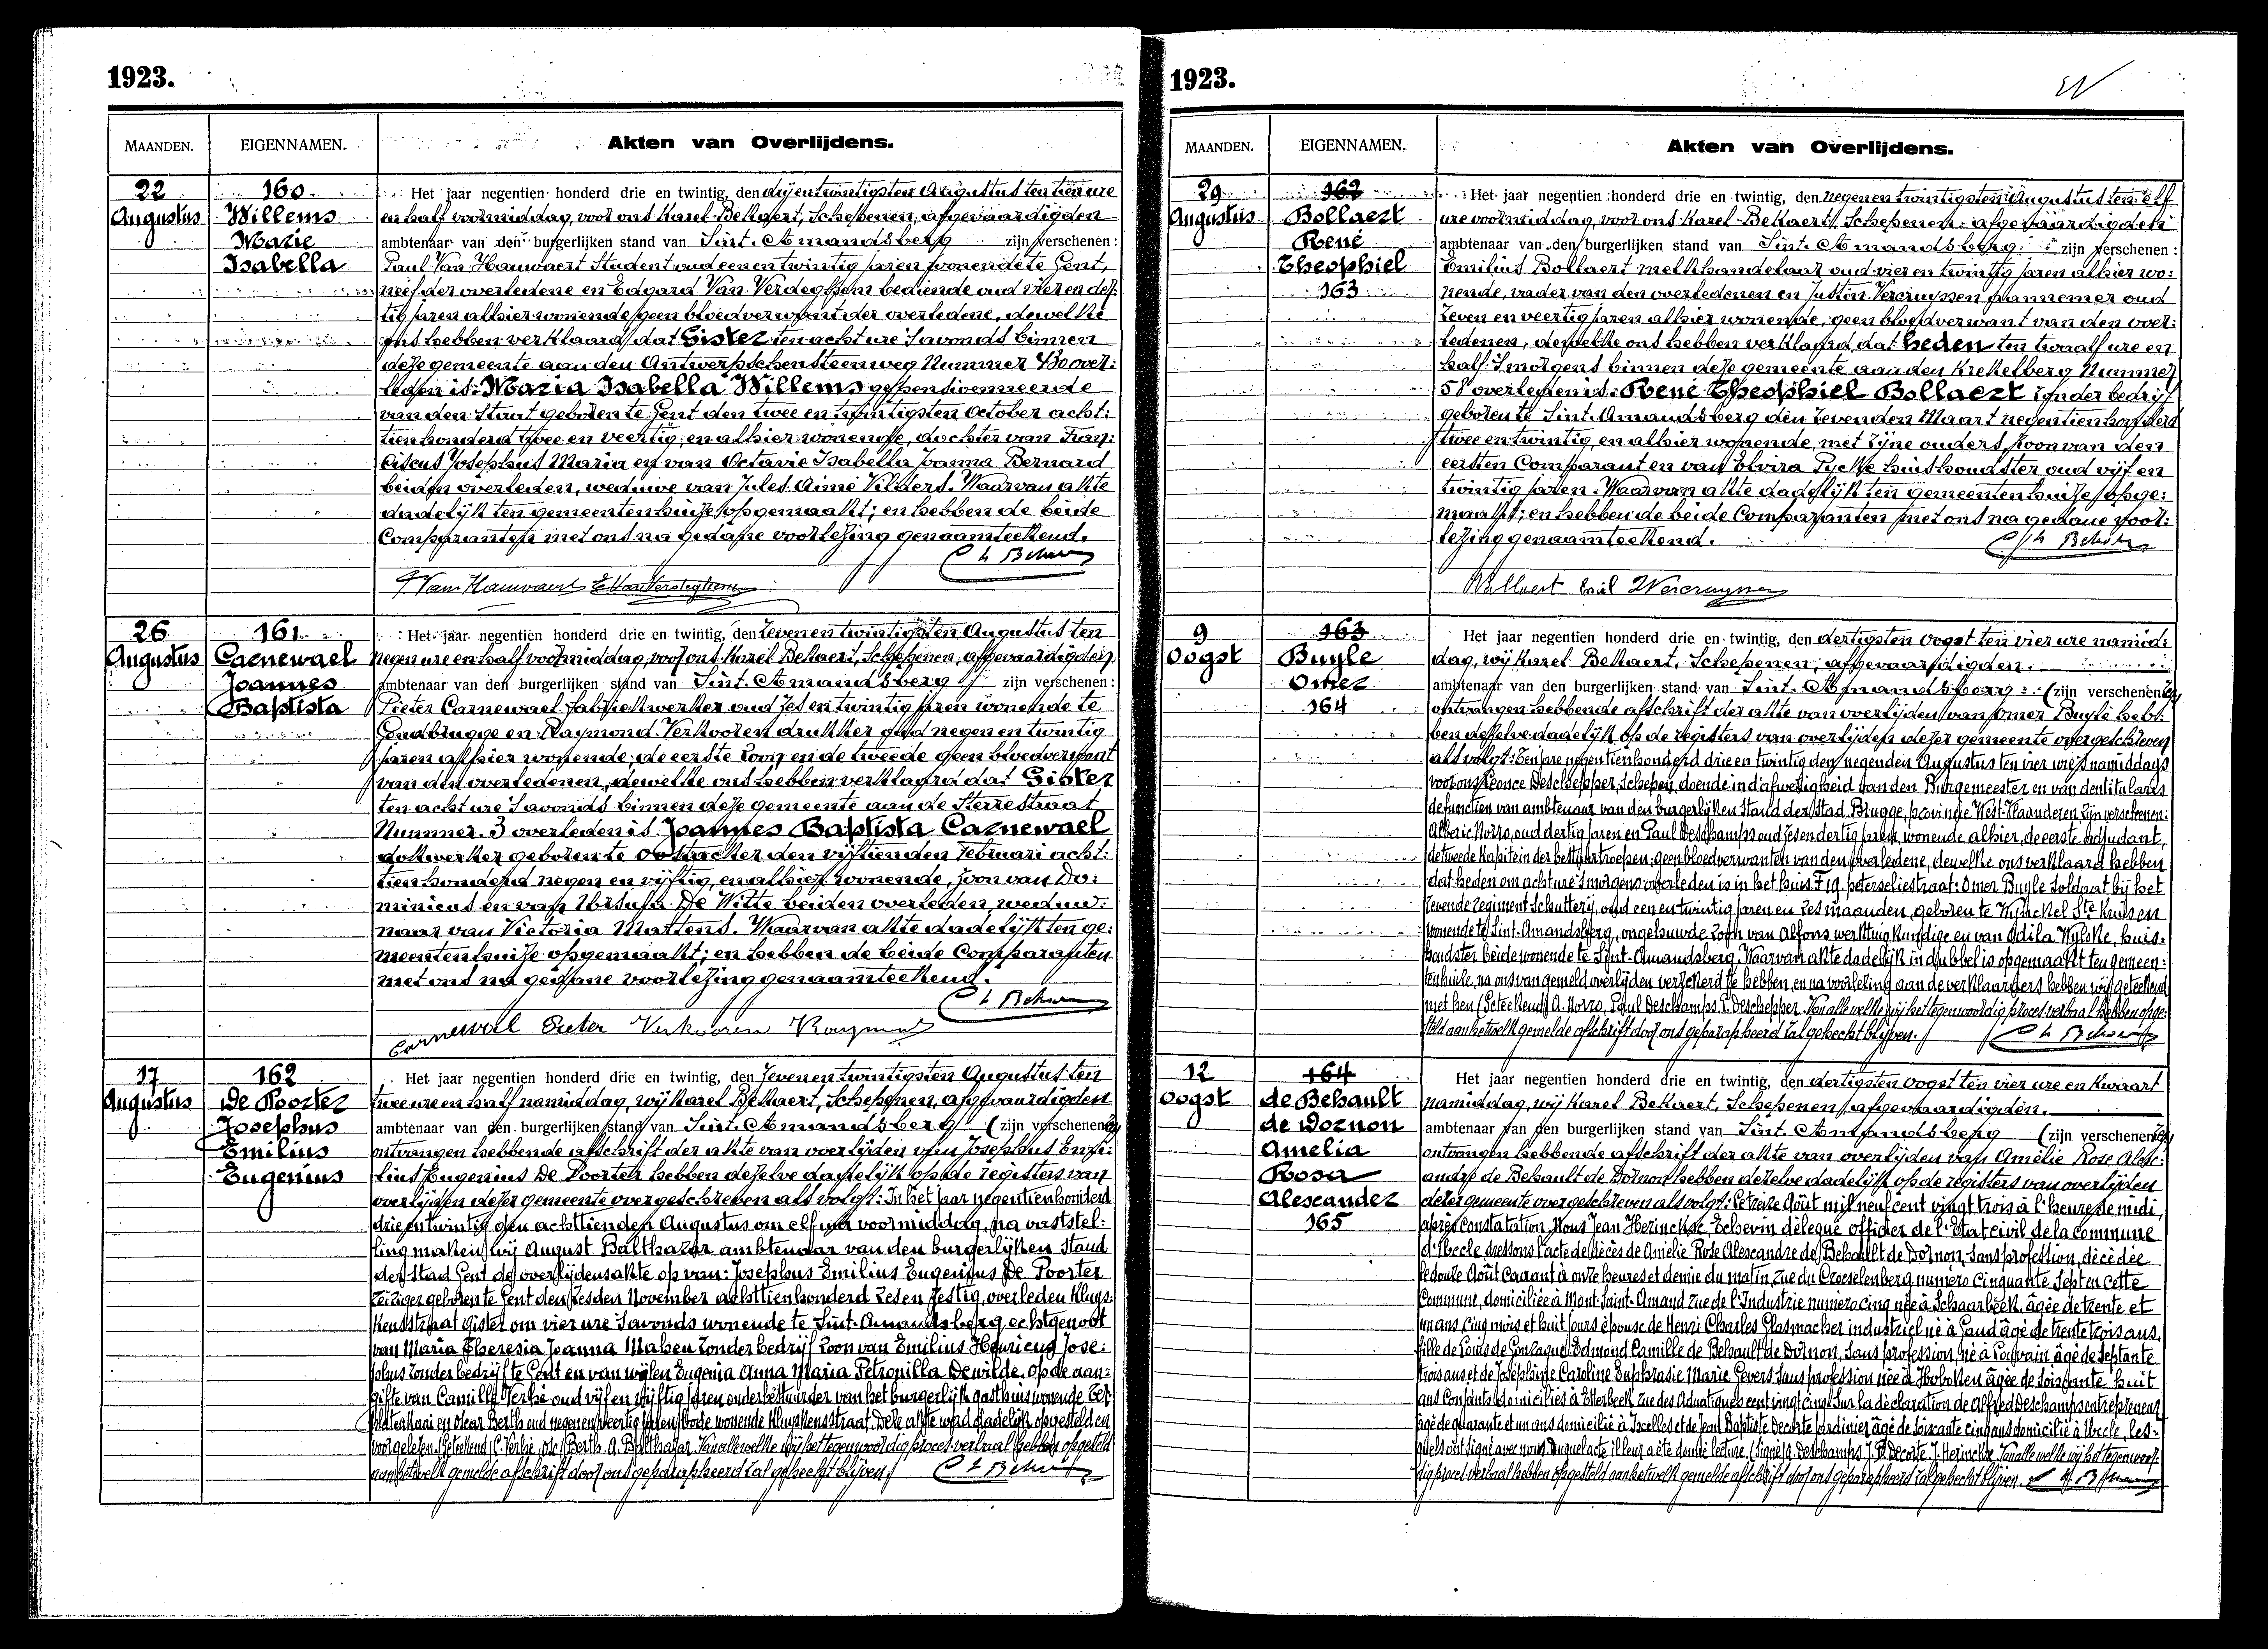 1923.
MAANDEN.
EIGENNAMEN.
Akten van Overlijdens.
22
Augustus
160
Willems
Marie
Isabella
Het jaar negentien honderd drie en twintig, den drijentwintigsten Augustus ten tien ure
en half voormiddag, voor ons Karel Bekaert, Schepenen, afgevaardigden
ambtenaar van den burgerlijken stand van Sint. Amandsberg zijn verschenen:
Paul Van Hauwaert Student oud eenentwintig jaren wonende te Gent,
neef der overledene en Edgard Van Verdeghem bediende oud vier en der:
tig jaren alhier wonende geen bloedverwant der overledene, dewelke
ons hebben verklaard dat Gister ten acht ure s'avonds binnen
deze gemeente aan den Antwerpschensteenweg Nummer over:
leden is: Maria Isabella Willems gepensioenneerde
van den Staat geboren te Gent den twee en twintigsten October acht:
tienhonderd twee en veertig, en alhier wonende, dochter van Fran:
ciscus Josephus Maria en van Octavie Isabella Joanna Bernard
beiden overleden, weduwe van Jules Aimé Vilaert. Waarvan akte
dadelijk ten gemeentenhuize opgemaakt; en hebben de beide
Comparanten met ons na gedane voorlezing genaamteekend.
26
Augustus
161
Carnewael
Joannes
Baptista
Het jaar negentien honderd drie en twintig, den zevenentwintigsten Augustus ten
negen ure en half voormiddag, voor ons Karel Bekaert, Schepenen, afgevaardigden
ambtenaar van den burgerlijken stand van Sint. Amandsberg zijn verschenen:
Pieter Carnewael fabriekwerker oud zes en twintig jaren wonende te
Gendbrugge en Raymond Verkooren drukker oud negen en twintig
jaren alhier wonende, de eerste zoon en de tweede geen bloedverwant
van den overledenen, dewelke ons hebben verklaard dat Gister
ten acht ure s'avonds binnen deze gemeente aan de Sterrestraat
Nummer. 3 overleden is Joannes Baptista Carnewael
dokwerker geboren te Oostacker den vijftienden Februari acht:
tienhonderd negen en vijftig, en alhier wonende, zoon van Do:
minicus en van Ursula De Witte beiden overleden, weduw:
naar van Victoria Martens. Waarvan akte dadelijk ten ge:
meentenhuize opgemaakt; en hebben de beide Comparanten
met ons na gedane voorlezing genaamteekend.
Carnewael Pieter Verkooren Raymond
17
Augustus
162
De Poorter
Josephus
Emilius
Eugenius
Het jaar negentien honderd drie en twintig, den zevenentwintigsten Augustus ten
twee ure en half namiddag, wij Karel Bekaert, Schepenen, afgevaardigden
ambtenaar van den burgerlijken stand van Sint. Amandsberg (zijn verschenen
ontvangen hebbende afschrift der akte van overlijden van Josephus Emi:
lius Eugenius De Poorter hebben dezelve dadelijk op de registers van
overlijden dezer gemeente overgeschreven als volgt: In het jaar negentienhonderd
drie en twintig den achttienden Augustus om elf ure voormiddag, na vaststel:
ling maken wij August Balthazar ambtenaar van den burgerlijken Stand
der Stad Gent de overlijdensakte op van: Josephus Emilius Eugenius De Poorter
reiziger geboren te Gent den zesden November achttienhonderd zes en zestig, overleden Kluys:
kensstraat gister om vier ure s'avonds wonende te Sint-Amandsberg echtgenoot
van Maria Theresia Joanna Malsen zonder bedrijf zoon van Emilius Henricus Jose:
phus zonder bedrijf te Gent en van wijlen Eugenia Anna Maria Petronilla Dewilde. op de aan:
gifte van Camille Verhé oud vijf en vijftig jaren onderbestuurder van het burgerlijk gasthuis wonende
en Oscar Berth oud negenenveertig jaren bode wonende Kluyskensstraat. Deze akte werd dadelijk opgesteld en
voorgelezen (Geteekend) C. Verhé, Osc. Berth. A. Balthazar. Van alle welke wij het tegenwoordig proces verbaal hebben opgesteld
aan hetwelk gemelde afschrift door ons geparapheerd zal gehecht blijven.
1923.
MAANDEN.
EIGENNAMEN.
Akten van Overlijdens.
29
Augustus
162
Bollaert
René
Theophiel
163
Het jaar negentien honderd drie en twintig, den negenentwintigsten Augustus ten elf
ure voormiddag, voor ons Karel Bekaert, Schepenen, afgevaardigden
ambtenaar van den burgerlijken stand van Sint. Amandsberg zijn verschenen:
Emilius Bollaert melkhandelaar oud vier en twintig jaren alhier wo:
nende, vader van den overledenen en Justin Vercruyssen pannemer oud
zeven en veertig jaren alhier wonende, geen bloedverwant van den over:
ledenen, dewelke ons hebben verklaard dat heden ten twaalf ure en
half s'morgens binnen deze gemeente aan den Krekelberg Nummer
58 overleden is: René Theophiel Bollaert zonder bedrijf
geboren te Sint. Amandsberg den zevenden Maart negentienhonderd
twee en twintig, en alhier wonende, met zijne ouders, zoon van den
eersten Comparant en van Elvira Pycke huishoudster oud vijf en
twintig jaren. Waarvan akte dadelijk ten gemeentenhuize opge:
maakt; en hebben de beide Comparanten met ons na gedane voor:
lezing genaamteekend.
Bollaert Emil Vercruyssen
9
Oogst
163
Buyle
Omer
164
Het jaar negentien honderd drie en twintig, den dertigsten Oogst ten vier ure namid:
dag, wij Karel Bekaert, Schepenen, afgevaardigden.
ambtenaar van den burgerlijken stand van Sint. Amandsberg: (zijn verschenen
ontvangen hebbende afschrift der akte van overlijden van Omer Buyle heb:
ben dezelve dadelijk op de registers van overlijden dezer gemeente overgeschreven
als volgt: Ten jare negentienhonderd drie en twintig den negenden Augustus ten vier ure namiddags
voor ons Leonce Deschepper, Schepen, doende in d'afwezigheid van den Burgemeester en van den titularis
de functien van ambtenaar van den burgerlijken Stand der Stad Brugge, provincie West-Vlaanderen, zijn verschenen:
Alberic Norro, oud dertig jaren en Paul Deschamps oud zesendertig jaren, wonende alhier, de eerste adjudant,
de tweede Kapitein der bestuurtroepen; geen bloedverwanten van den overledene, dewelke ons verklaard hebben
dat heden om acht ure s'morgens overleden is in het huis F 19. peterseliestraat: Omer Buyle Soldaat bij het
zevende regiment Schuttery, oud eenentwintig jaren en zes maanden, geboren te Wynckel Ste Kruisen
wonende te Sint-Amandsberg, ongehuwde zoon van Alfons werktuigkundige en van Odila Wylcke, huis-
houdster beide wonende te Sint-Amandsberg. Waarvan akte dadelijk in dubbel is opgemaakt ten gemeen:
tenhuize, na ons van gemeld overlijden verzekerd te hebben, en na voorlezing aan de verklaarders hebben wij geteekend
met hen (Geteekend) A. Norro, Paul Deschamps. L. Deschepper. Van alle welke wij het tegenwoordig proces verbaal hebben opge:
steld aan hetwelk gemelde afschrift door ons geparapheerd zal gehecht blijven.
12
Oogst
164
de Behault
de Dornon
Amelia
Rosa
Alexander
165
Het jaar negentien honderd drie en twintig, den dertigsten Oogst ten vier ure en kwaart
namiddag, wij Karel Bekaert, Schepenen, afgevaardigden.
ambtenaar van den burgerlijken stand van Sint. Amandsberg (zijn verschenen
ontvangen hebbende afschrift der akte van overlijden van Amélie Rose Alex:
andre de Behault de Dornon hebben dezelve dadelijk op de registers van overlijden
dezer gemeente overgeschreven als volgt: Le treize Août mil neuf cent vingt trois à l'heure de midi,
après constatation, Nous Jean Herinckx, Echevin délegué officier de l'Etat civil de la commune
d'Uccle, dressons l'acte de décès de Amélie Rose Alexandre de Behault de Dornon, sans profession, décédée
le douze Août Courant à onze heures et demie du matin, rue du Croeselenberg numéro cinquante sept en cette
Commune, domiciliée à Mont-Saint-Amand rue de l'Industrie numéro cinq née à Schaarbeek, âgée de trente et
un ans, cinq mois et huit jours épouse de Henri Charles Glasmacher industriel né à Gand âgé de trente trois ans,
fille de Louis de Gonzague Edmond Camille de Behault de Dornon, sans profession, né à Louvain âgé de septante
trois ans et de Joséphine Caroline Euphrasie Marie Gevers sans profession née à Hoboken âgée de soixante huit
ans Conjoints domiciliés à Etterbeek rue des Aduatiques cent vingt cinq. Sur la déclaration de Alfred Deschamps entrepreneur
âgé de quarante et un ans domicilié à Ixelles et de Jean Baptiste Decorte jardinier âgé de soixante cinq ans domicilié à Uccle, les-
quels ont signé avec nous. Duquel acte il leur a été donné lecture (Signé) A. Deschamps J. B. Decorte. J. Herinckx. Van alle welke wij het tegenwoor:
dig proces-verbaal hebben opgesteld aan hetwelk gemelde afschrift door ons geparapheerd zal gehecht blijven.